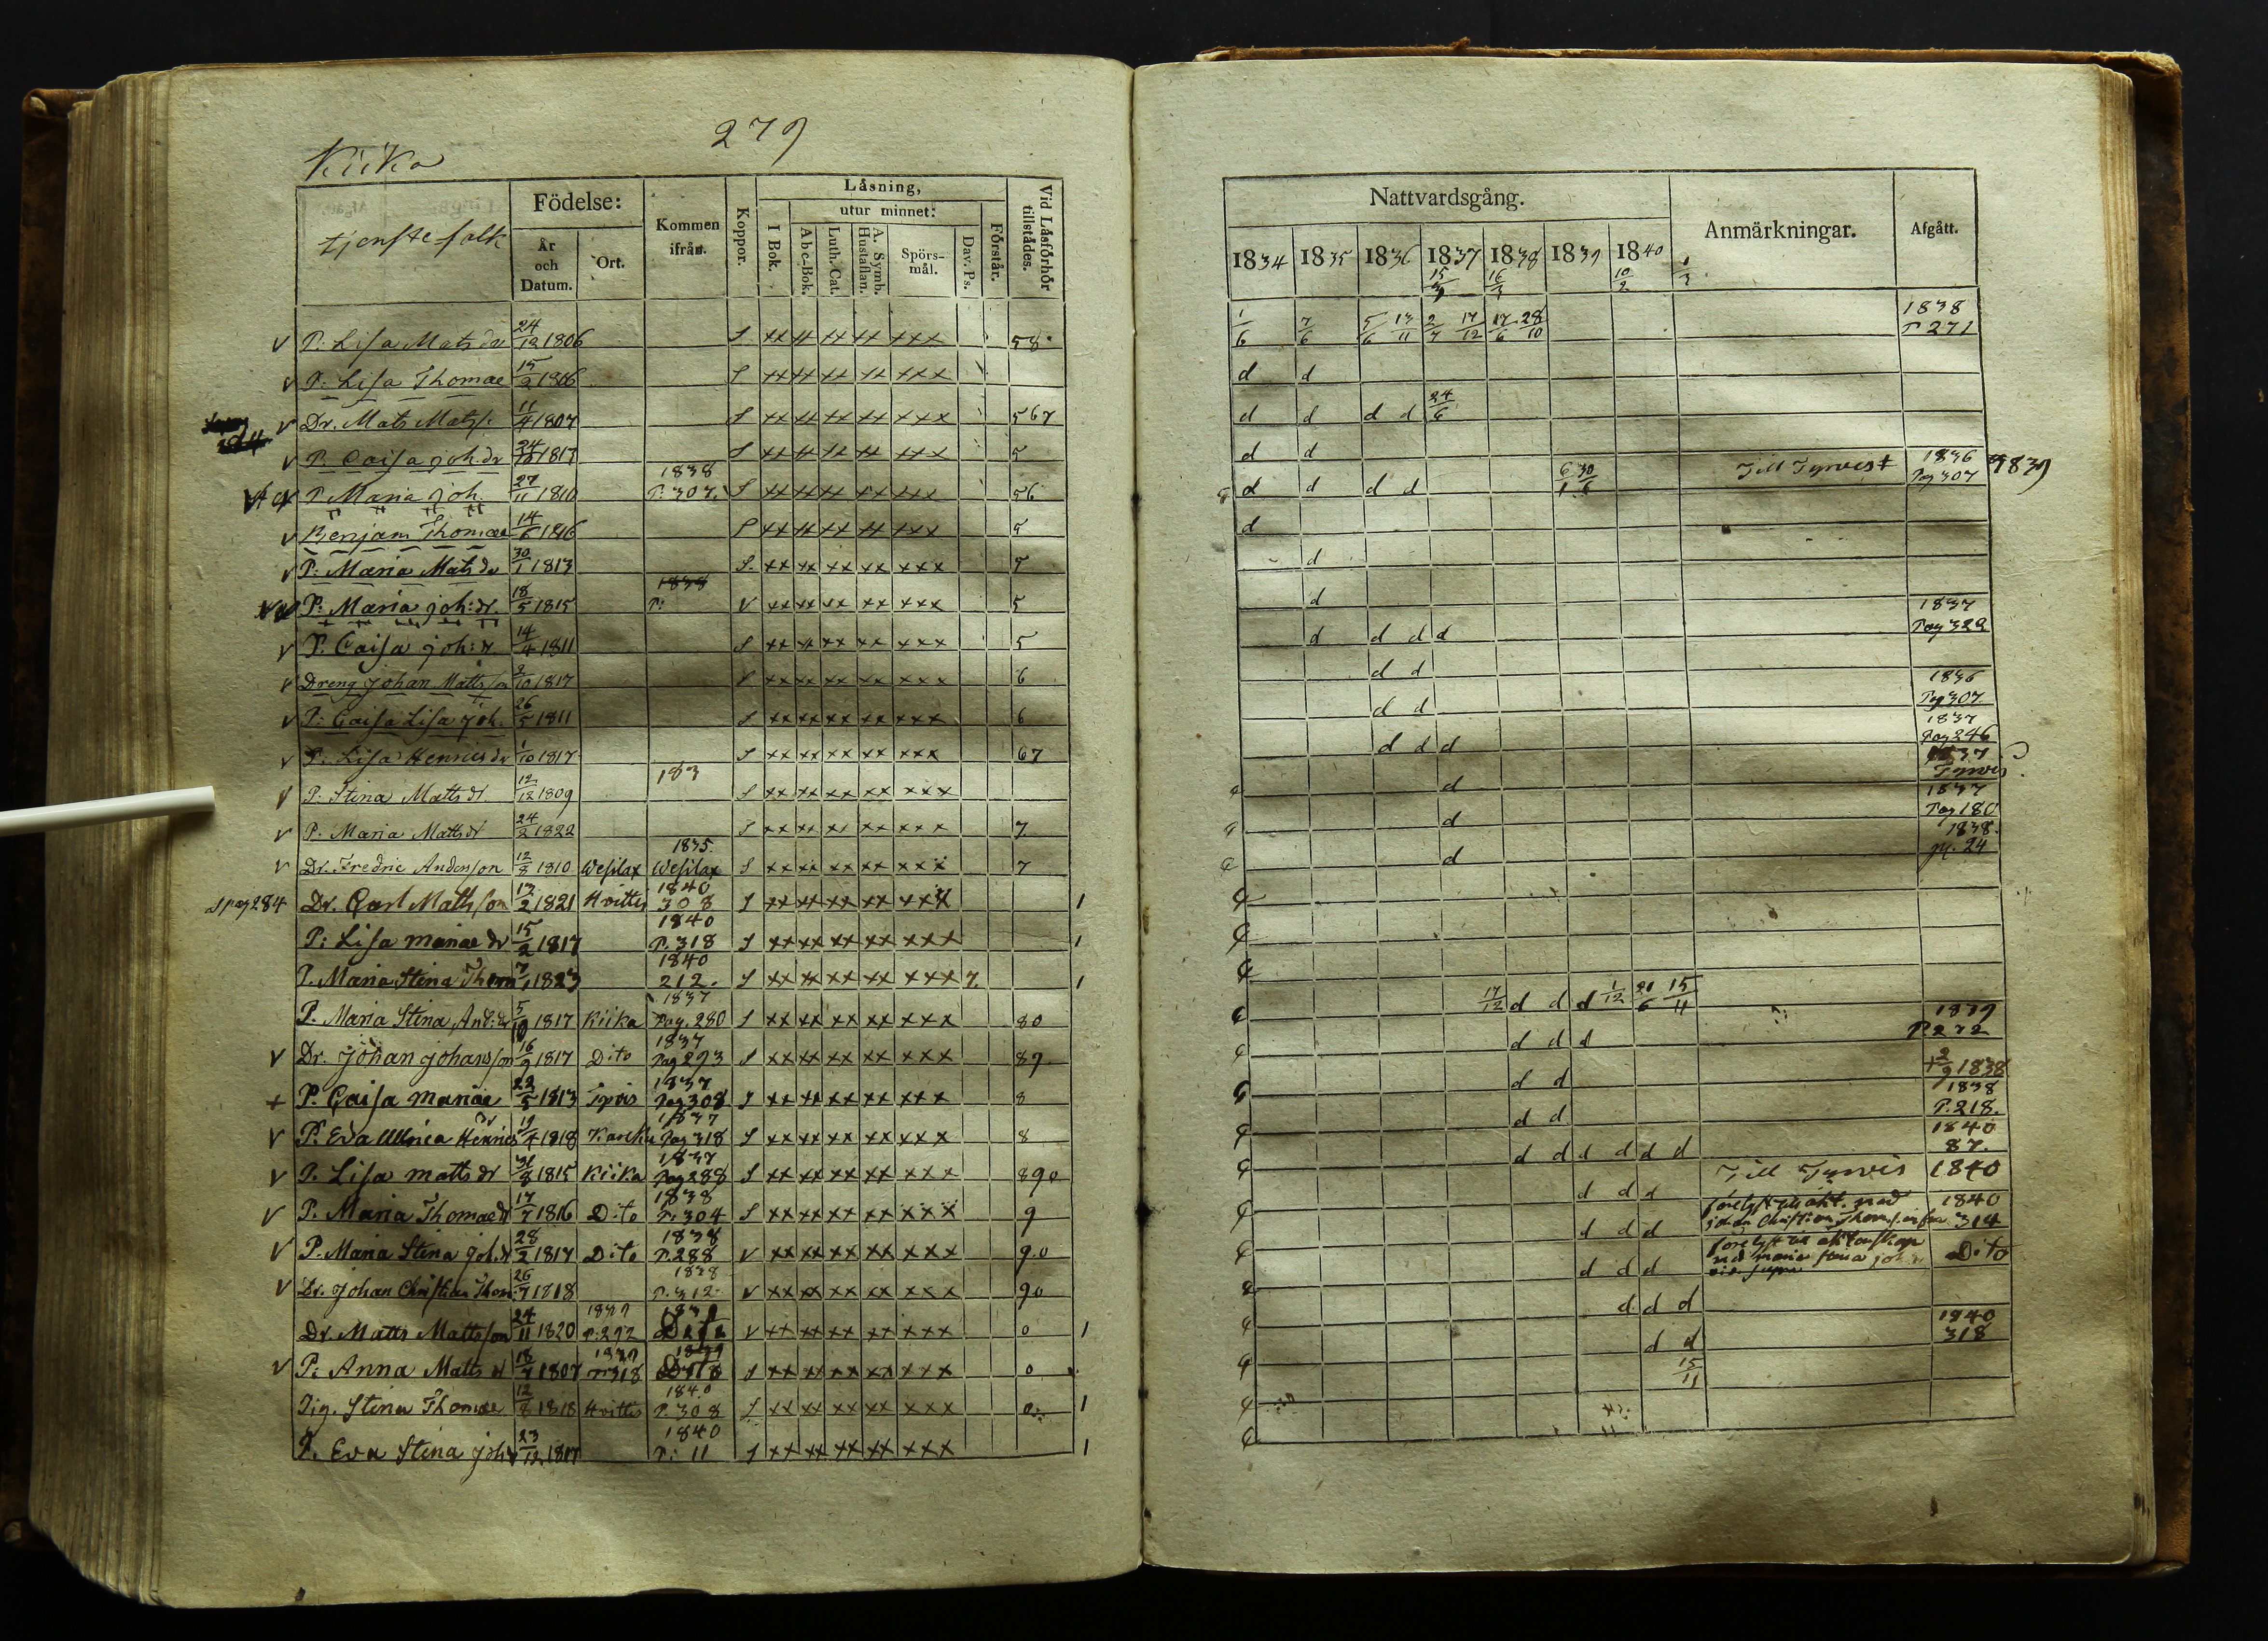 279
Kiika
tjenstefolk
Födelse:
År och Datum.
Ort.
Kommen ifrån.
Koppor.
Läsning,
I Bok.
utur minnet:
Abc-Bok.
Luth. Cat.
A. Symb. Hustaflan.
Spörs-mål.
Dav. Ps.
Förstår.
Vid Läsförhör tillstådes.
v P: Lisa Mats dr 24/12 1806 S xx xx xx xx xxx 58
v P: Lisa Thomae 15/2 1806 S xx xx xx xx xxx
v Dr. Mats Mats s. 11/4 1807 S xx xx xx xx xxx 567
v P. Caisa Joh. dr 24/10 1817 S xx xx xx xx xxx 5
P Maria Joh. 27/11 1810 1838 P. 307. S xx xx xx xx xxx 56
v Benjam Thomae 14/6 1816 S xx xx xx xx xxx 5
v P: Maria Mats dr 30/1 1813 S. xx xx xx xx xxx 5
P: Maria Joh: dr. 18/5 1815 1838 P: V xx xx xx xx xxx 5
v P: Caisa Joh: dr 14/4 1811 S xx xx xx xx xxx 5
v Dreng Johan Mattsson 2/10 1817 V xx xx xx xx xxx 6
v P: Caisa Lisa Joh. 26/5 1811 S xx xx xx xx xxx 6
v P. Lisa Henrics dr 1/10 1817 S xx xx xx xx xxx 67
v P: Stina Matts dr 12/12 1809 183 S xx xx xx xx xxx
v P. Maria Matts dr 24/2 1822 S xx xx xx xx xxx 7
v Dr. Fredric Andersson 12/8 1810 Wesilax 1835. Wesilax S xx xx xx xx xxx 7
S pag 284 Dr. Carl Mathsson 13/2 1821 Hvittis 1840 308 S xx xx xx xx xxx 1
P: Lisa Mariae dr 15/2 1817 1840 P. 318 S xx xx xx xx xxx 1
P. Maria Stina Thom 7/1 1823 1840 212. S xx xx xx xx xxx 7. 1
P. Maria Stina And: dr 5/10 1817 Kiika 1837 Pag. 280 S xx xx xx xx xxx 80
v Dr. Johan Johansson 16/9 1817 Dito 1837 Pag 293 S xx xx xx xx xxx 89
+ P. Caisa Mariae 22/5 1813 1837 Pag 308 S xx xx xx xx xxx 8
v P. Eva Ulrica Henrics dr 19/4 1818 1837 Pag 318 S xx xx xx xx xxx 8
v P. Lisa Matts dr 31/8 1815 Kiika 1837 Pag 288 S xx xx xx xx xxx 890
v P. Maria Thomae dr 17/7 1816 Dito 1838 P. 304 S xx xx xx xx xxx 9
v P. Maria Stina Joh. dr 28/2 1817 Dito 1838 P. 288 V xx xx xx xx xxx 9.0
v Dr. Johan Christian Thom: 26/7 1818 1838 P. 312 V xx xx xx xx xxx 90
Dr. Matts Mattsson 24/11 1820 1839 P. 292 V xx xx xx xx xxx 0 1
v P: Anna Matts dr 18/7 1807 1839 P 318 S xx xx xx xx xxx 0
Pig. Stina Thomae 12/8 1818 Hvittis 1840 P. 308 S xx xx xx xx xxx 0 1
P. Eva Stina Joh dr 23/12 1817 1840 P: 11 S xx xx xx xx xxx 1
Nattvardsgång.
Anmärkningar.
Afgått.
1834 1835 1836 1837 1838 1839 1840
16/3 10/2
1/6 7/6 5/6 13/11 2/7 17/12 17/6 28/10 1838 P 271
d d
d d d d 24/6
d d
d d d d Till Tyrvis 1836 Pag 307 1839
d
d
d
d d d d 1837 Pag 322
d d
d d 1836 Pag 307
d d d 1837 Pag 246
d 1837 Tyrvis
d 1837 Pag 180
d 1838. 24
17/12 d d d 1/12 15/11
d d d 1839 P 272
d d + 2/9 1838
d d 1838 P. 218.
d d d d d d 1840 87.
d d d Till Tyrvis 1840
d d d 1840 314
Johan Christian Thoms.
d d d Dito
med Maria Stina Joh
d d d
d d 1840 318
15/11